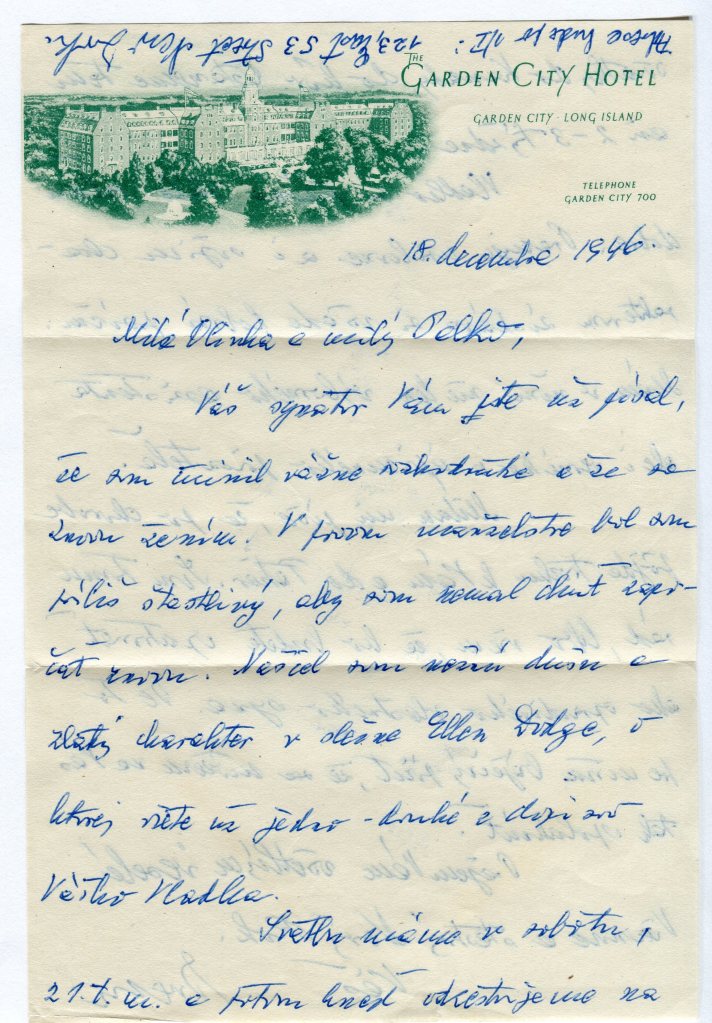 Adresa bude po III:
123, East 53 Street New York.
THE
GARDEN CITY HOTEL
GARDEN CITY · LONG ISLAND
TELEPHONE
GARDEN CITY 700
18. decembra 1946.
Milá Olinka a milý Palko,
Váš synátor Vám iste už písal,
že som učinil vážne rozhodnutie a že sa
znovu žením. V prvom manželstve bol som
príliš šťastlivý, aby som nemal chuť zapo-
čať znovu. Našiel som peknú dušu a
zlatý charakter v slečne Ellen Dodge, o
ktorej viete už jedno-druhé z dopisov
Vášho Vladka.
Svatbu máme v sobotu,
21. t. m. a potom hneď odcestujeme na